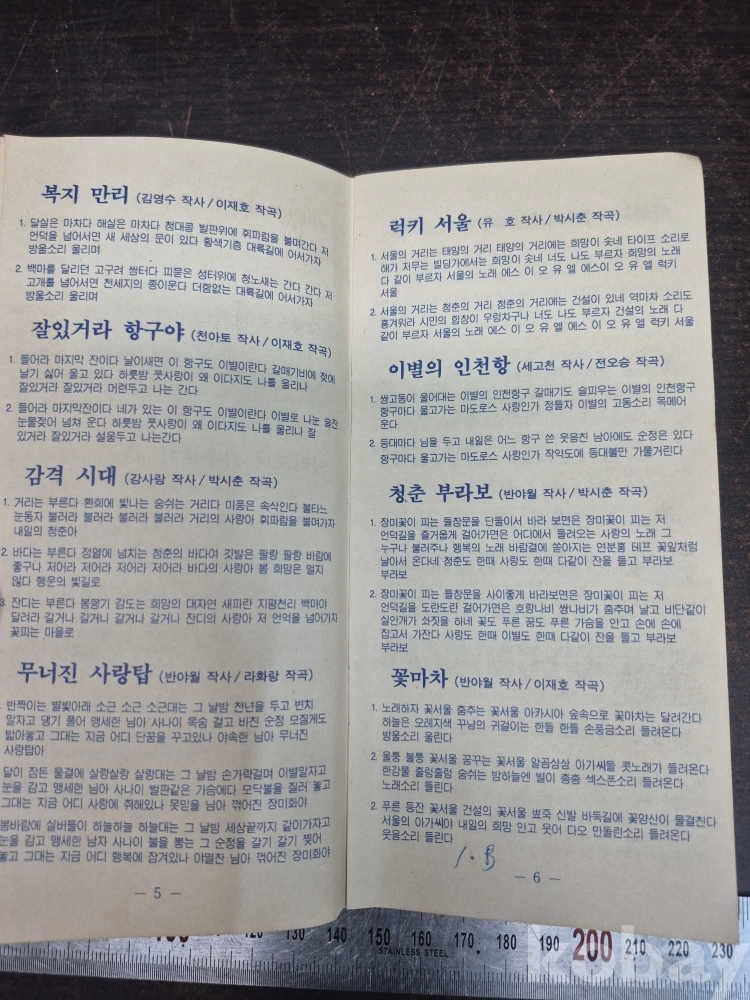 복지 만리 (김영수 작사/이재호 작곡)
1. 달실은 마차다 해실은 마차다 청대콩 벌판위에 휘파람을 불며간다 저
언덕을 넘어서면 새 세상의 문이 있다 황색기층 대륙길에 어서가자
방울소리 울리며
2. 백마를 달리던 고구려 쌈터다 피묻은 성터위에 청노새는 간다 간다 저
고개를 넘어서면 천세지의 종이운다 더함없는 대륙길에 어서가자
방울소리 울리며
잘있거라 항구야 (천아토 작사/이재호 작곡)
1. 들어라 마지막 잔이다 날이새면 이 항구도 이별이란다 갈매기비에 젖에
날기 싫어 울고 있다 하룻밤 풋사랑이 왜 이다지도 나를 울리나
잘있거라 잘있거라 머련두고 나는 간다
2. 들어라 마지막잔이다 네가 있는 이 항구도 이별이란다 이별로 나눈 술잔
눈물젖어 넘쳐 운다 하룻밤 풋사랑이 왜 이다지도 나를 울리나 잘
있거라 잘있거라 설움두고 나는간다
감격 시대 (강사랑 작사/박시춘 작곡)
1. 거리는 부른다 환희에 빛나는 숨쉬는 거리다 미풍은 속삭인다 불타느
눈동자 불러라 불러라 불러라 불러라 거리의 사랑아 휘파람을 불며가자
내일의 청춘아
2. 바다는 부른다 정열에 넘치는 청춘의 바다여 깃발은 팔랑 팔랑 바람에
좋구나 저어라 저어라 저어라 저어라 바다의 사랑아 봄 희망은 멀지
않다 행운의 빛길로
3. 잔디는 부른다 봄향기 감도는 희망의 대자연 새파란 지평천리 백마야
달려라 갈거나 갈거나 갈거나 갈거나 잔디의 사랑아 저 언덕을 넘어가자
꽃피는 마을로
무너진 사랑탑 (반야월 작사/라화랑 작곡)
반짝이는 별빛아래 소근 소근 소근대는 그 날밤 천년을 두고 변치
말자고 댕기 풀어 맹세한 님아 사나이 목숨 걸고 바친 순정 모질게도
밟아놓고 그대는 지금 어디 단꿈을 꾸고있나 야속한 님아 무너진
사랑탑아
달이 잠든 물결에 살랑살랑 살랑대는 그 날밤 손가락걸며 이별말자고
눈을 감고 맹세한 님아 사나이 벌판같은 가슴에다 모닥불을 질러 놓고
그대는 지금 어디 사랑에 취해있나 못믿을 님아 꺾어진 장미화야
봄바람에 실버들이 하늘하늘 하늘대는 그 날밤 세상끝까지 같이가자고
눈을 감고 맹세한 남자 사나이 불을 뿜는 그 순정을 갈기 갈기 찢어
놓고 그대는 지금 어디 행복에 잠겨있나 야멸찬 님아 꺾어진 장미화야
— 5 —
럭키 서울 (유 호 작사/박시춘 작곡)
1. 서울의 거리는 태양의 거리 태양의 거리에는 희망이 솟네 타이프 소리로
해가 저무는 빌딩가에서는 희망이 솟네 너도 나도 부르자 희망의 노래
다 같이 부르자 서울의 노래 에스 이 오 유 엘 에스이 오 유 엘 럭키
서울
2. 서울의 거리는 청춘의 거리 청춘의 거리에는 건설이 있네 역마차 소리도
흥겨워라 시민의 합창이 우렁차구나 너도 나도 부르자 건설의 노래 다
같이 부르자 서울의 노래 에스 이 오 유 엘 에스 이 오 유 엘 럭키 서울
이별의 인천항 (세고천 작사/전오승 작곡)
1. 쌍고동이 울어대는 이별의 인천항구 갈매기도 슬피우는 이별의 인천항구
항구마다 울고가는 마도로스 사랑인가 정들자 이별의 고동소리 목메어
운다
2. 등대마다 님을 두고 내일은 어느 항구 쓴 웃음친 남아에도 순정은 있다
항구마다 울고가는 마도로스 사랑인가 작약도에 등대불만 가물거린다
청춘 부라보 (반야월 작사/박시춘 작곡)
1. 장미꽃이 피는 들창문을 단둘이서 바라 보면은 장미꽃이 피는 저
언덕길을 즐거웁게 걸어가면은 어디에서 들려오는 사랑의 노래 그
누구나 불러주나 행복의 노래 바람결에 쏟아지는 연분홍 테프 꽃잎처럼
날아서 온다네 청춘도 한때 사랑도 한때 다같이 잔을 들고 부라보
부라보
2. 장미꽃이 피는 들창문을 사이좋게 바라보면은 장미꽃이 피는 저
언덕길을 도란도란 걸어가면은 호랑나비 쌍나비가 춤추며 날고 비단같이
실안개가 쇠짓을 하네 꽃도 푸른 꿈도 푸른 가슴을 안고 손에 손에
잡고서 가잔다 사랑도 한때 이별도 한때 다같이 잔을 들고 부라보
부라보
꽃마차 (반야월 작사/이재호 작곡)
1. 노래하자 꽃서울 춤추는 꽃서울 아카시아 숲속으로 꽃마차는 달려간다
하늘은 오레지색 꾸냥의 귀걸이는 한들 한들 손풍금소리 들려온다
방울소리 울린다
2. 울퉁 불퉁 꽃서울 꿈꾸는 꽃서울 알곰삼삼 아가씨들 콧노래가 들려온다
한강물 출렁출렁 숨쉬는 밤하늘엔 별이 총총 섹스폰소리 들려온다
노래소리 들린다
2. 푸른 등잔 꽃서울 건설의 꽃서울 뾰죽 신발 바둑길에 꽃양산이 물결친다
서울의 아가씨야 내일의 희망 안고 웃어 다오 만돌린소리 들려온다
웃음소리 들린다
1.B
— 6 —
130 140 150 160 170 180 190 200 210 220 230
STAINLESS STEEL
kobay